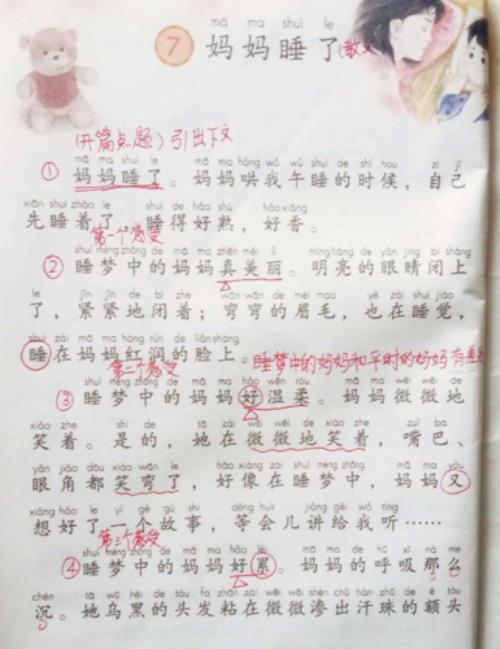 mā ma shuì le
7 妈妈睡了 (散文
(开篇点题) 引出下文
mā ma shuì le mā ma hǒng wǒ wǔ shuì de shí hou zì jǐ
① 妈妈睡了。妈妈哄我午睡的时候，自己
xiān shuì zháo le shuì de hǎo shú hǎo xiāng
先睡着了，睡得好熟，好香。
第一个感受
shuì mèng zhōng de mā ma zhēn měi lì míng liàng de yǎn jing bì shàng
② 睡梦中的妈妈真美丽。明亮的眼睛闭上
le jǐn jǐn de bì zhe wān wān de méi mao yě zài shuì jiào
了，紧紧地闭着；弯弯的眉毛，也在睡觉，
shuì zài mā ma hóng rùn de liǎn shàng
睡在妈妈红润的脸上。
第二个感受 睡梦中的妈妈和平时的妈妈有差
shuì mèng zhōng de mā ma hǎo wēn róu mā ma wēi wēi de
③ 睡梦中的妈妈好温柔。妈妈微微地
xiào zhe shì de tā zài wēi wēi de xiào zhe zuǐ ba
笑着。是的，她在微微地笑着，嘴巴、
yǎn jiǎo dōu xiào wān le hǎo xiàng zài shuì mèng zhōng mā ma yòu
眼角都笑弯了，好像在睡梦中，妈妈又
xiǎng hǎo le yí gè gù shi děng huìr jiǎng gěi wǒ tīng
想好了一个故事，等会儿讲给我听……
第三个感受
shuì mèng zhōng de mā ma hǎo lèi mā ma de hū xī nà me
④ 睡梦中的妈妈好累。妈妈的呼吸那么
chén tā wū hēi de tóu fa zhān zài wēi wēi shèn chū hàn zhū de é tóu
沉。她乌黑的头发粘在微微渗出汗珠的额头